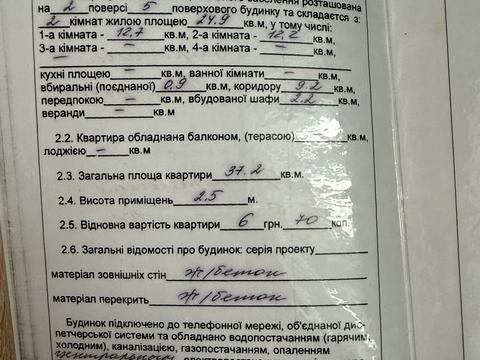 на 2 поверсі 5 поверхового будинку та складається з:
2 кімнат жилою площею 24,9 кв.м, у тому числі:
1-а кімната - 12,7 кв.м, 2-а кімната - 12,2 кв.м,
3-а кімната - — кв.м, 4-а кімната - — кв.м,
—
кухні площею — кв.м, ванної кімнати — кв.м,
вбиральні (поєднаної) 0,9 кв.м, коридору 9.2 кв.м,
передпокою — кв.м, вбудованої шафи 2.2 кв.м,
веранди — кв.м
2.2. Квартира обладнана балконом, (терасою) кв.м,
лоджією — кв.м
2.3. Загальна площа квартири 37.2 кв.м.
2.4. Висота приміщень 2.5 м.
2.5. Відновна вартість квартири 6 грн. 70 коп.
2.6. Загальні відомості про будинок: серія проекту
матеріал зовнішніх стін ж/бетон
матеріал перекрить ж/бетон
Будинок підключено до телефонної мережі, об'єднаної дис-
петчерської системи та обладнано водопостачанням (гарячим,
холодним), каналізацією, газопостачанням, опаленням